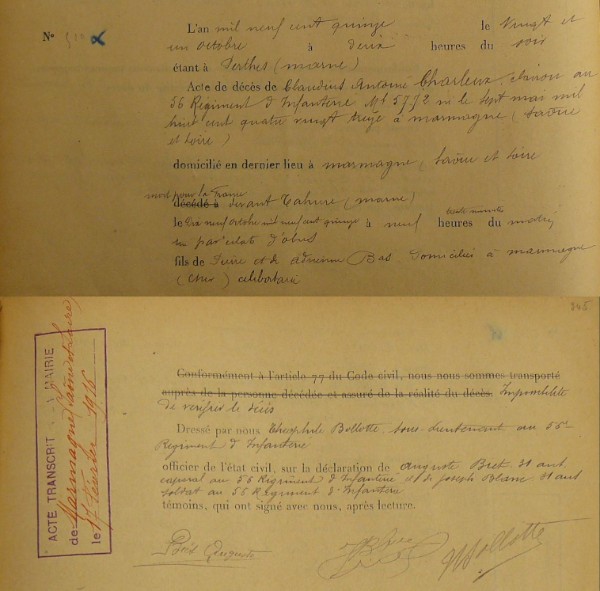 N°
L'an mil neuf cent quinze le Vingt et
un octobre à deux heures du soir
étant à Perthes (marne)
Acte de décès de Claudius Antoine Charleux, clairon au
56 Regiment d'Infanterie Mle 5792 né le sept mai mil
huit cent quatre vingt treize à marmagne (Saône
et Loire)
domicilié en dernier lieu à marmagne, Saône et Loire
mort pour la France
décédé à devant Tahure (marne)
le Dix neuf octobre mil neuf cent quinze à neuf heures du matin
trente minutes
par éclats d'obus
fils de et de Bas Domiciliés à marmagne
célibataire
345
Conformément à l'article 77 du Code civil, nous nous sommes transporté
auprès de la personne décédée et assuré de la réalité du décès. Impossibilité
de verifier le décès
Dressé par nous Théophile Bollotte, sous-lieutenant au 56e
Regiment d'Infanterie
officier de l'état civil, sur la déclaration de Auguste Bret 31 ans
caporal au 56 Regiment d'Infanterie et de Joseph Blanc 31 ans
soldat au 55 Regiment d'Infanterie
témoins, qui ont signé avec nous, après lecture.
Bret Auguste
Bollotte
ACTE TRANSCRIT MAIRIE
de Marmagne (Saône et Loire)
le 17 février 1916